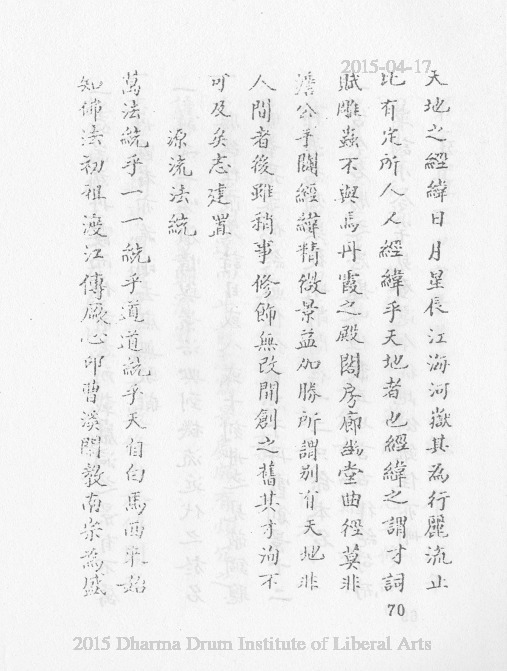 2015-04-17
天地之經緯日月星辰江海河嶽其為行麗流止
比有定所人人經緯乎天地者也經緯之謂才詞
賦雕蟲不與焉丹霞之殿閣房廊幽堂曲徑莫非
澹公手闢經緯精微景益加勝所謂別有天地非
人間者後雖稍事修飾無改開創之舊其才洵不
可及矣志建置
源流法統
萬法統乎一一統乎道道統乎天自白馬西來始
知佛法初祖渡江傳厥心印曹溪闡教南宗為盛
70
2015 Dharma Drum Institute of Liberal Arts